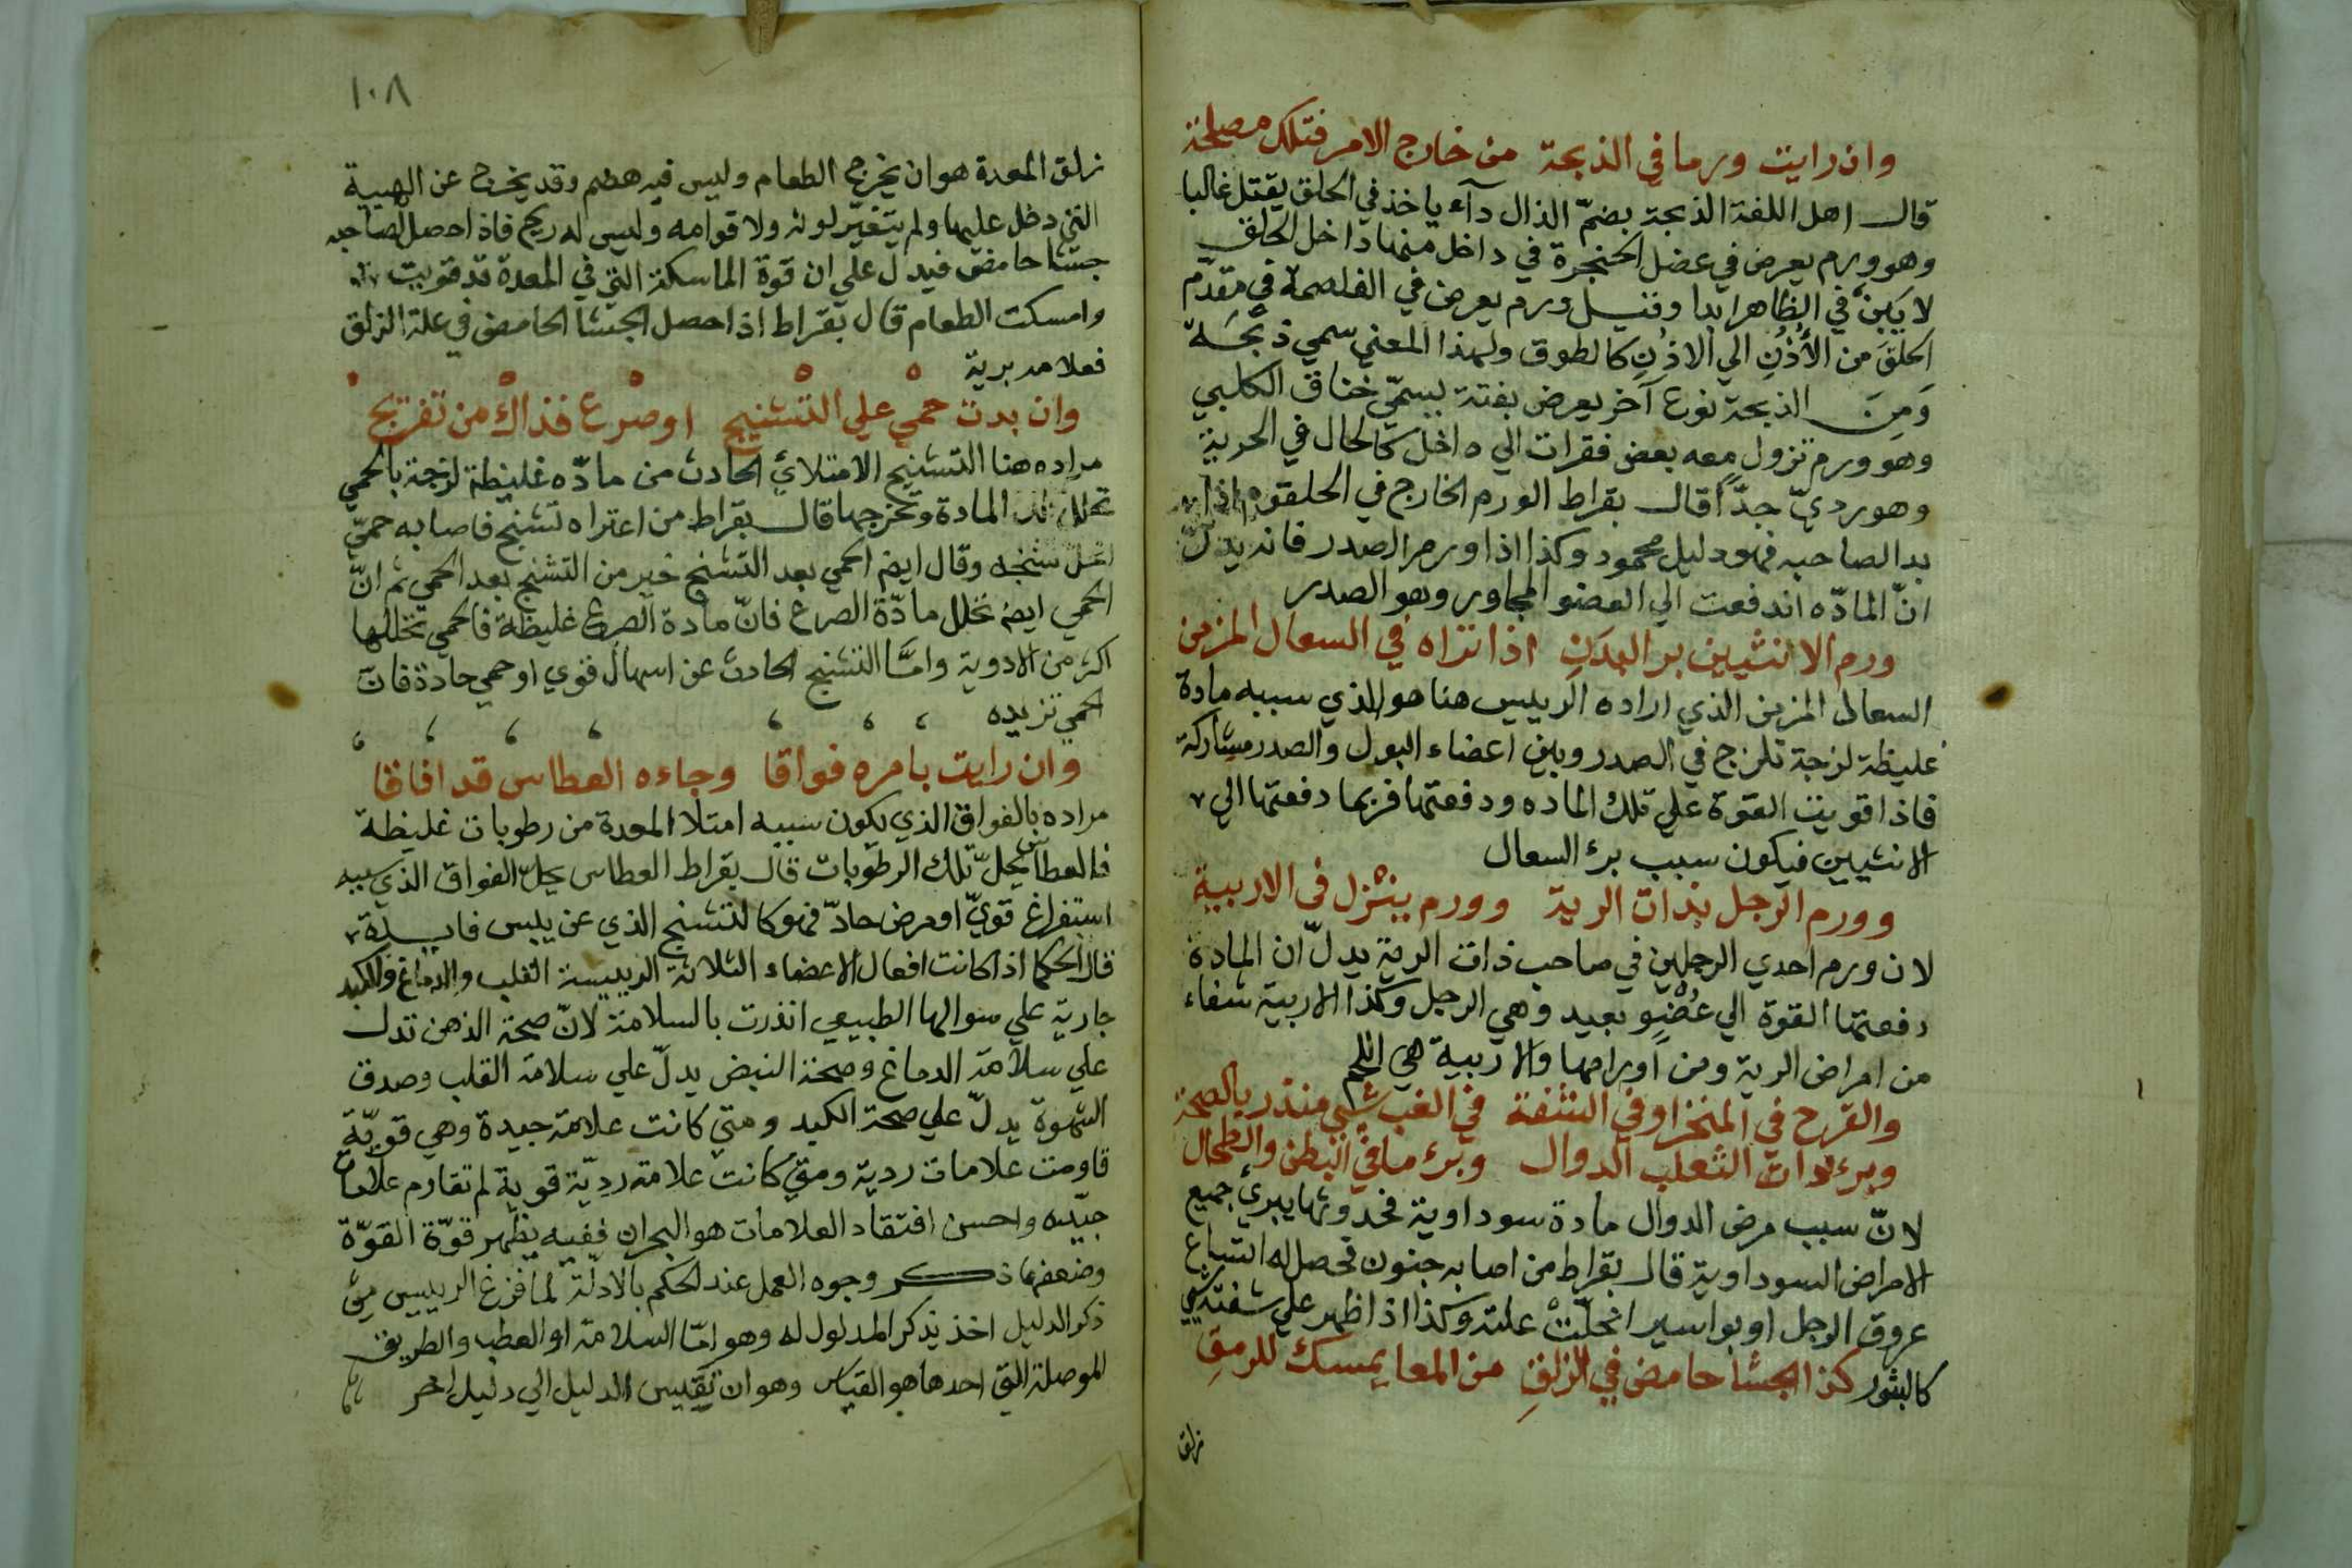 وان رايت ورما في الذبحة من خارج الامر فتلك مصلحة
قال اهل اللغة الذبحة بضمّ الذال دآء ياخذ في الحلق يقتل غالبا
وهو ورم يعرض في عضل الحنجرة في داخل منها داخل الحلق
لا يَبِنْ في الظاهر ابدا وقيل ورم يعرض في الغلصمة في مقدّم
الحلق من الأُذُنِ الي الاذُنِ كالطوق ولهذا المعني سمي ذبحَة
وَمِنَ الذبحة نوع آخر يعرض بغتة يسمّي خناق الكلبي
وهو ورم تزول معه بعض فقرات الي داخل كالحال في الحربة
وهو رديّ جدّاً قال بقراط الورم الخارج في الحلقوم اذا
بدا لصاحبه فهو دليل محمود وكذا اذا ورم الصدر فانه يدلّ
انّ المادّه اندفعت الي العضو المجاور وهو الصدر
ورم الانثيين برالبدَنِ اذا تراه في السعال المزمن
السعال المزمن الذي اراده الرييس هنا هو الذي سببه مادة
غليظة لزجة تلزج في الصدر وبين اعضاء البول والصدر مشاركة
فاذا قويت القوة علي تلك الماده ودفعتها فربما دفعتها الي
الانثيين فيكون سبب برء السعال
وورم الرجل بذات الرية وورم ينزل في الاربية
لان ورم احدي الرجلين في صاحب ذات الرية يدلّ ان المادة
دفعتها القوة الي عُضوٍ بعيد وهي الرجل وكذا الاربية شفاء
من امراض الرية ومن اورامها والاربية هي اللحم
والقرح في المنخر او في الشفة في الغب شي منذر بالصحة
وبرء داء الثعلب الدوال وبرء ما في البطن والطحال
لانّ سبب مرض الدوال مادة سوداوية فحدوثها يبرئ جميع
الامراض السوداوية قال بقراط من اصابه جنون فحصل له اتساع
عروق الرجل او بواسير انحلّتْ علته وكذا اذا ظهر علي شفته شي
كالبثور كذا الجشا حامض في الزلقِ من المعا يمسك للرمقِ
زلق
١٠٨
زلق المعدة هو ان يخرج الطعام وليس فيه هضم وقد يخرج عن الهيية
التي دخل عليها ولم يتغيّر لونه ولا قوامه وليس له ريح فاذا حصل لصاحبه
جشا حامض فيدل علي ان قوة الماسكة التي في المعدة قد قويت
وامسكت الطعام قال بقراط اذا حصل الجشا الحامض في علة الزلق
فعلامه برية
وان بدت حمي علي التشنيج او صرع فذاك من تفريج
مراده هنا التشنج الامتلائي الحادث من مادّه غليظة لزجة بالحمي
تحلل تلك المادة وتخرجها قال بقراط من اعتراه تشنج فاصابه حمّي
انحلّ تشنجه وقال ايضا الحمي بعد التشنج خير من التشنج بعد الحمي ثم انّ
الحمي ايضا تحلل مادّة الصرع فانّ مادة الصرع غليظة فالحمي تحللها
اكثر من الادوية وامّا التشنج الحادث عن اسهال قوي او حمي حادة فانّ
الحمي تزيده
وان رايت بامره فواقا وجاءه العطاس قد افاقا
مراده بالفواق الذي يكون سببه امتلا المعدة من رطوبات غليظة
فالعطاس يحلّ تلك الرطوبات قال بقراط العطاس يحلّ الفواق الذي سببه
استفراغ قويّ او مرض حادّ فهو كالتشنج الذي عن يبس
قال الحكما اذا كانت افعال الاعضاء الثلاثة الرييسة القلب والدماغ والكبد
جارية علي منوالها الطبيعي انذرت بالسلامة لانّ صحة الذهن تدل
علي سلامة الدماغ وصحة النبض يدلّ علي سلامة القلب وصدق
الشهوة يدلّ علي صحة الكبد ومتي كانت علامة جيدة وهي قويّة
قاومت علامات ردية ومتي كانت علامة رديّة قوية لم تقاوم علامات
جيّده واحسن افتقاد العلامات هو البحران ففيه يظهر قوّة القوّة
وضعفها ذكر وجوه العمل عند الحكم بالادلّة لما فرغ الرييس من
ذكر الدليل اخذ يذكر المدلول له وهو امّا السلامة او العطب والطريق
الموصلة التي احدها هو القياس وهو ان تقيس الدليل الي دليل اخر